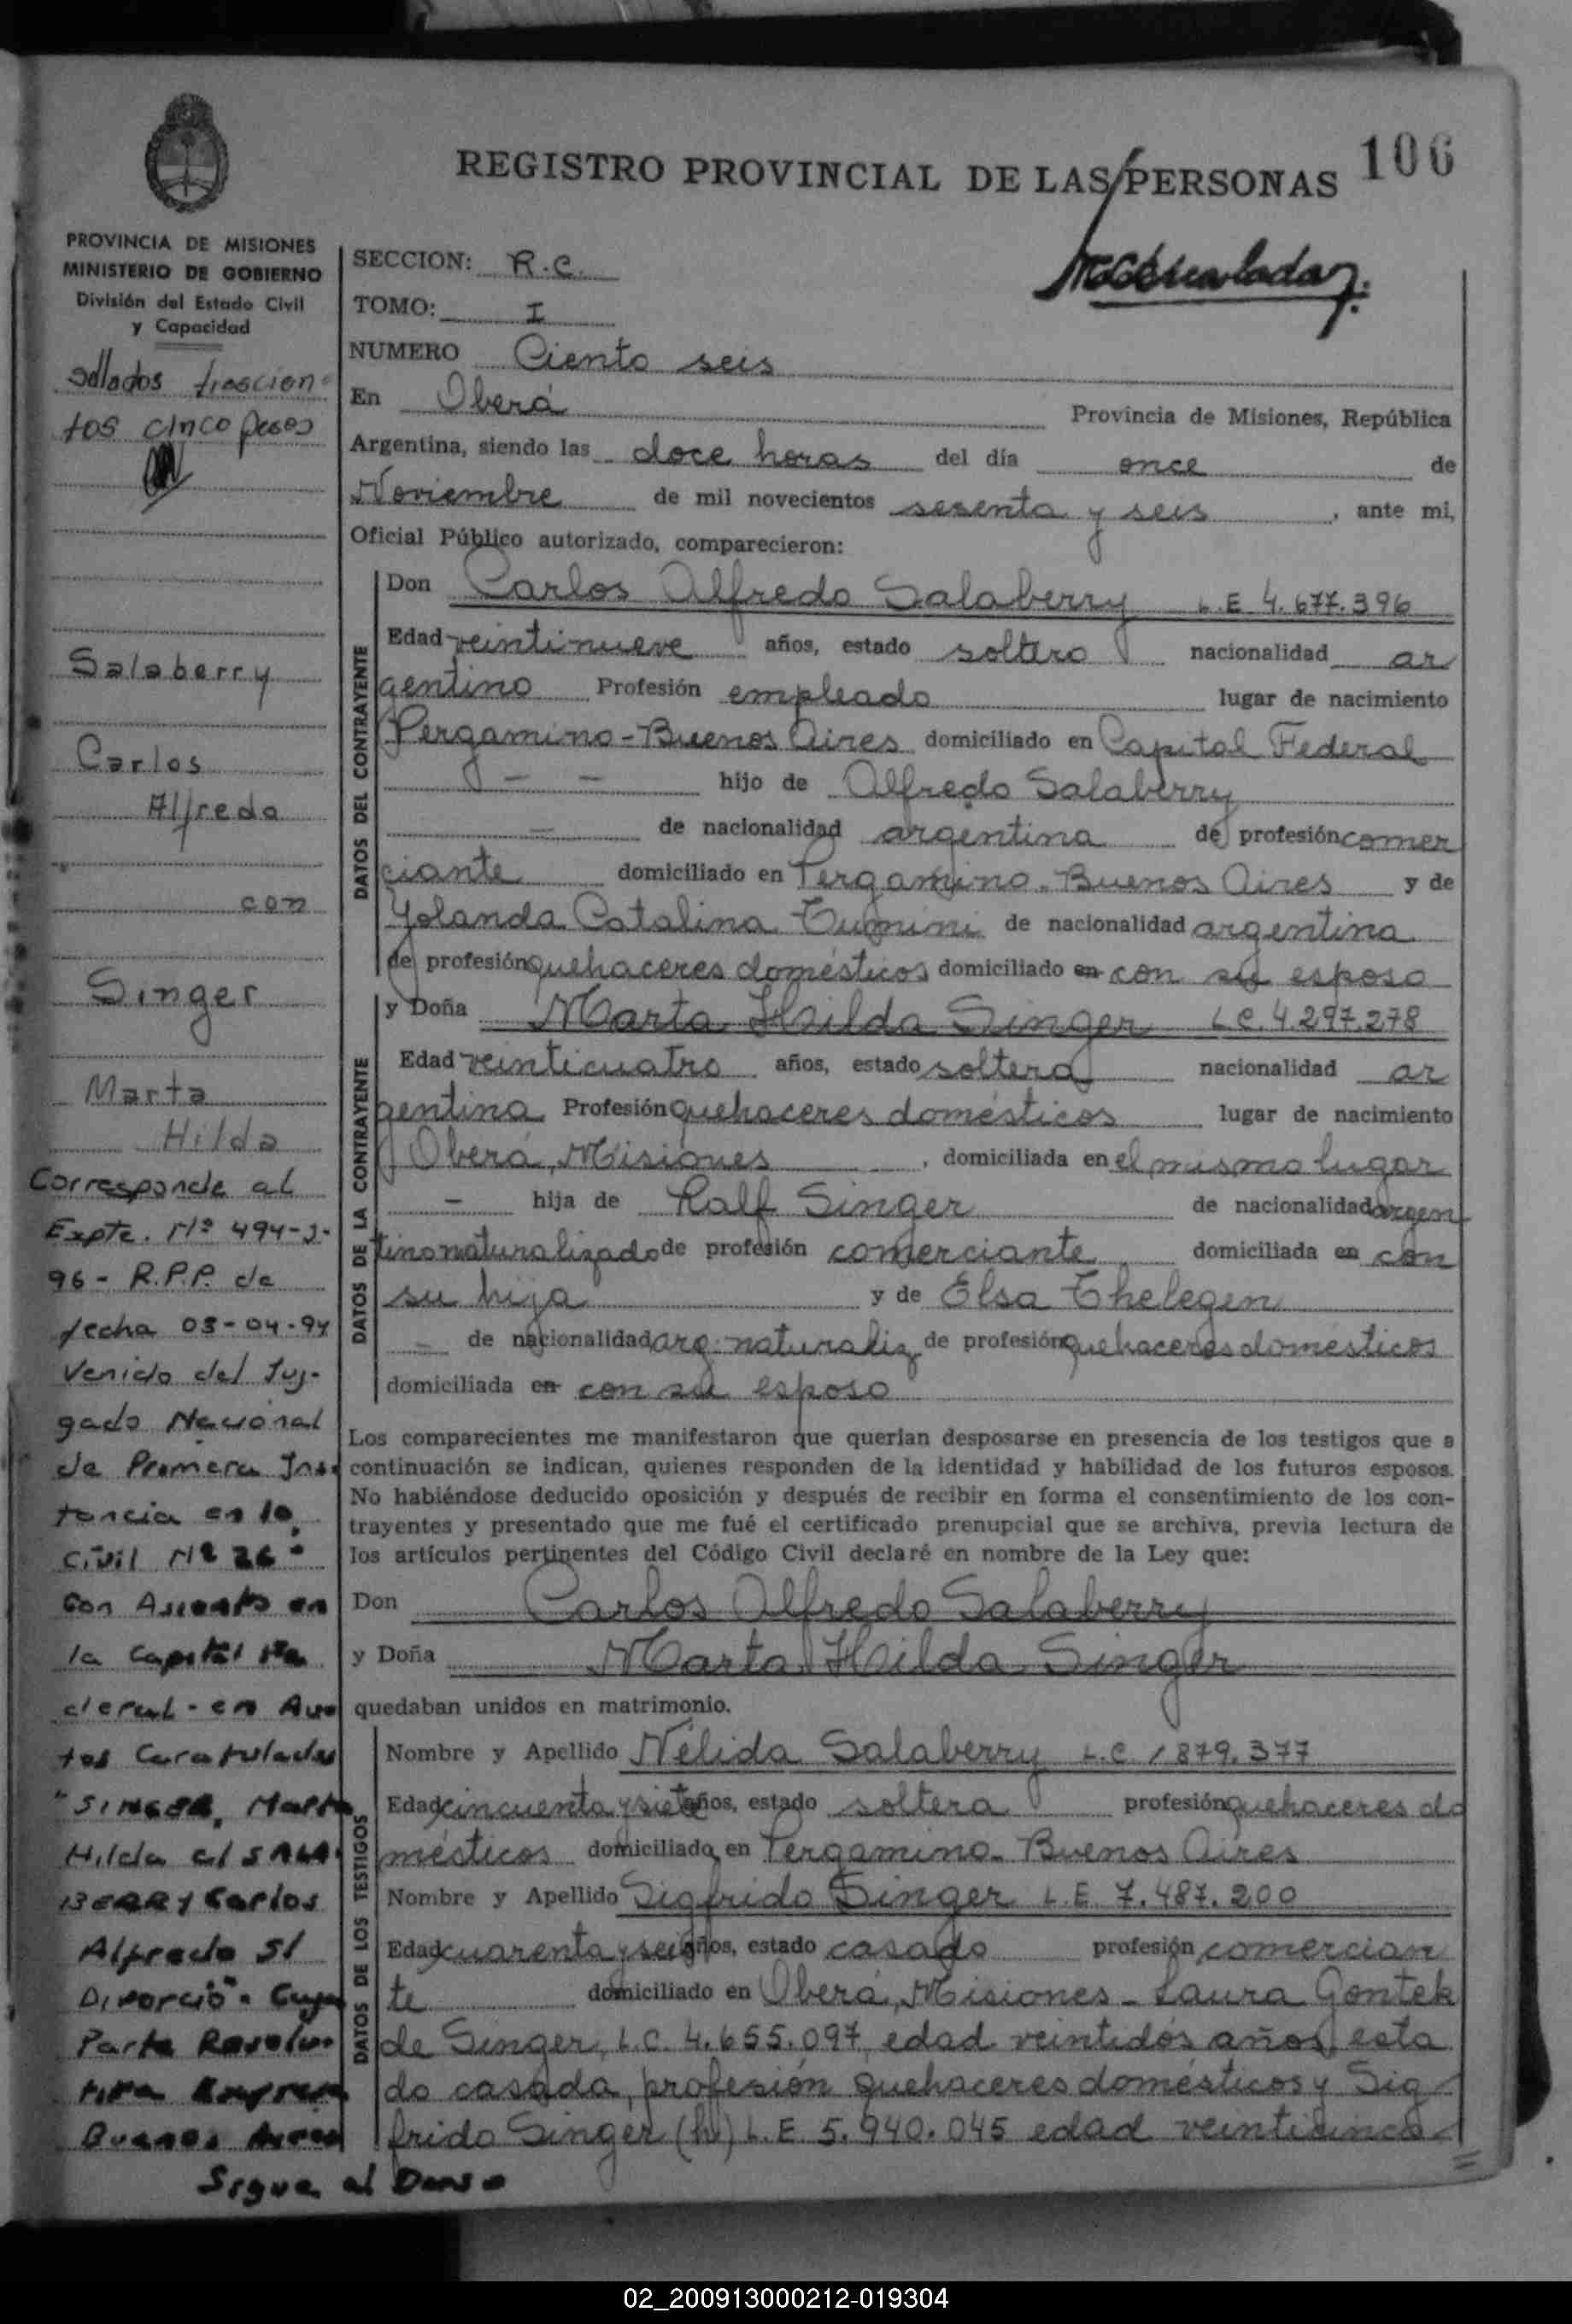 REGISTRO PROVINCIAL DE LAS PERSONAS
106
PROVINCIA DE MISIONES
MINISTERIO DE GOBIERNO
División del Estado Civil
y Capacidad
sellados trescien-
tos cinco pesos
Salaberry
Carlos
Alfredo
con
Singer
Marta
Hilda
Corresponde al
Expte. Nº 494-J-
96- R.P.P. de
fecha 03-04-94
Venido del Juz-
gado Nacional
de Primera Ins-
tancia en lo
Civil Nº 26 -
Con Asiento en
la Capital Fe
deral - en Au
tos Caratulados
"SINGER, Marta
Hilda c/ SALA-
BERRY Carlos
Alfredo S/
Divorcio" Cuya
Parte Resolu-
tiva
Buenos Aires
Sigue al Dorso
SECCION: R.C.
TOMO: I
NUMERO Ciento seis
En Oberá Provincia de Misiones, República
Argentina, siendo las doce horas del día once de
Noviembre de mil novecientos sesenta y seis, ante mi,
Oficial Público autorizado, comparecieron:
DATOS DEL CONTRAYENTE
Don Carlos Alfredo Salaberry L.E 4.677.396
Edad veintinueve años, estado soltero nacionalidad ar
gentino Profesión empleado lugar de nacimiento
Pergamino - Buenos Aires domiciliado en Capital Federal
- - hijo de Alfredo Salaberry
- de nacionalidad argentina de profesión comer
ciante domiciliado en Pergamino - Buenos Aires y de
Yolanda Catalina Tumini de nacionalidad argentina
de profesión quehaceres domésticos domiciliado en con su esposo
DATOS DE LA CONTRAYENTE
y Doña Marta Hilda Singer L.C. 4.297.278
Edad veinticuatro años, estado soltera nacionalidad ar
gentina Profesión quehaceres domésticos lugar de nacimiento
Oberá, Misiones, domiciliada en el mismo lugar
- hija de Ralf Singer de nacionalidad argen
tino naturalizado de profesión comerciante domiciliada en con
su hija y de Elsa Thelegen
- de nacionalidad arg. naturaliz de profesión quehaceres domésticos
domiciliada en con su esposo
Los comparecientes me manifestaron que querían desposarse en presencia de los testigos que a
continuación se indican, quienes responden de la identidad y habilidad de los futuros esposos.
No habiéndose deducido oposición y después de recibir en forma el consentimiento de los con-
trayentes y presentado que me fué el certificado prenupcial que se archiva, previa lectura de
los artículos pertinentes del Código Civil declaré en nombre de la Ley que:
Don Carlos Alfredo Salaberry
y Doña Marta Hilda Singer
quedaban unidos en matrimonio.
DATOS DE LOS TESTIGOS
Nombre y Apellido Nélida Salaberry L.C 1879.377
Edad cincuenta y siete años, estado soltera profesión quehaceres do
mésticos domiciliado en Pergamino - Buenos Aires
Nombre y Apellido Sigfrido Singer L.E. 7.487.200
Edad cuarenta y seis años, estado casado profesión comercian
te domiciliado en Oberá, Misiones - Laura Gontek
de Singer, L.C. 4.655.097, edad veintidós años, esta
do casada, profesión quehaceres domésticos y Sig
frido Singer (h) L.E 5.940.045 edad veinticinco
02_200913000212-019304